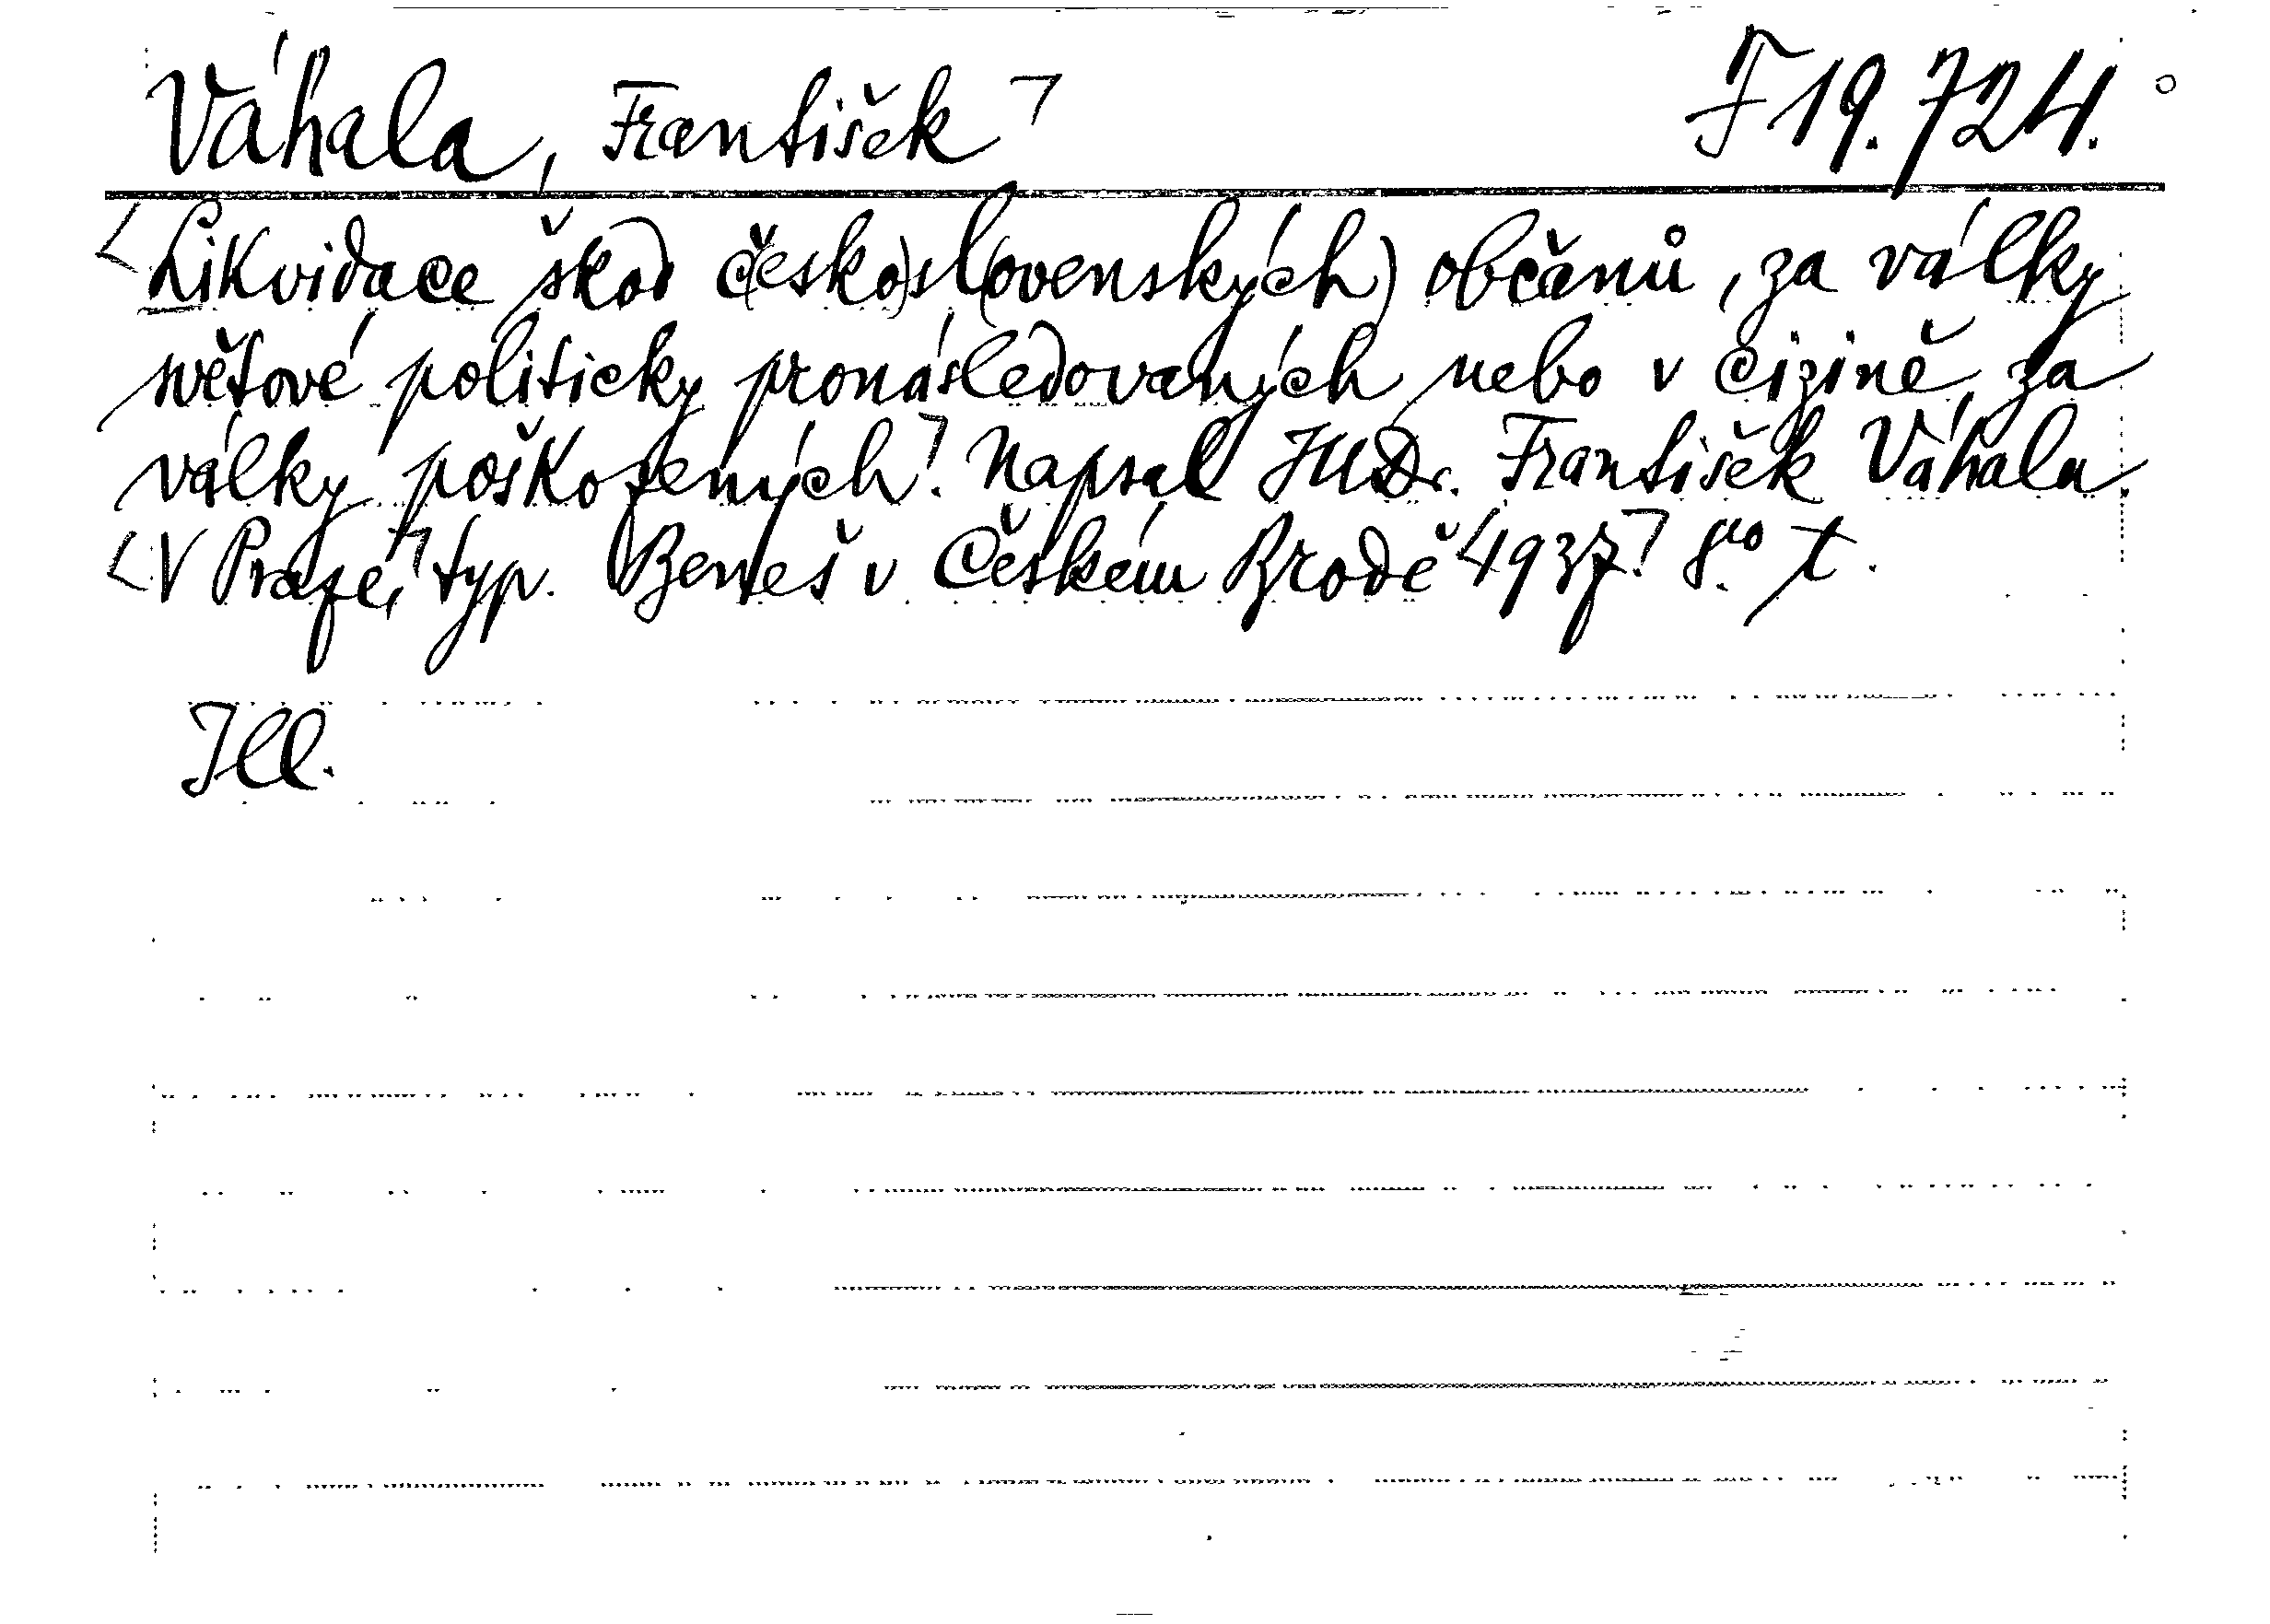 Váhala, František ⌉ F 19.724.°
<Likvidace škod č(esko)sl(ovenských) občanů, za války
světové politicky pronásledovaných nebo v cizině za
války poškozených⌉. Napsal JUDr. František Váhala
<V Praze,⌉ typ. Beneš v Českém Brodě <1937⌉. 8.vo t.
Ill.